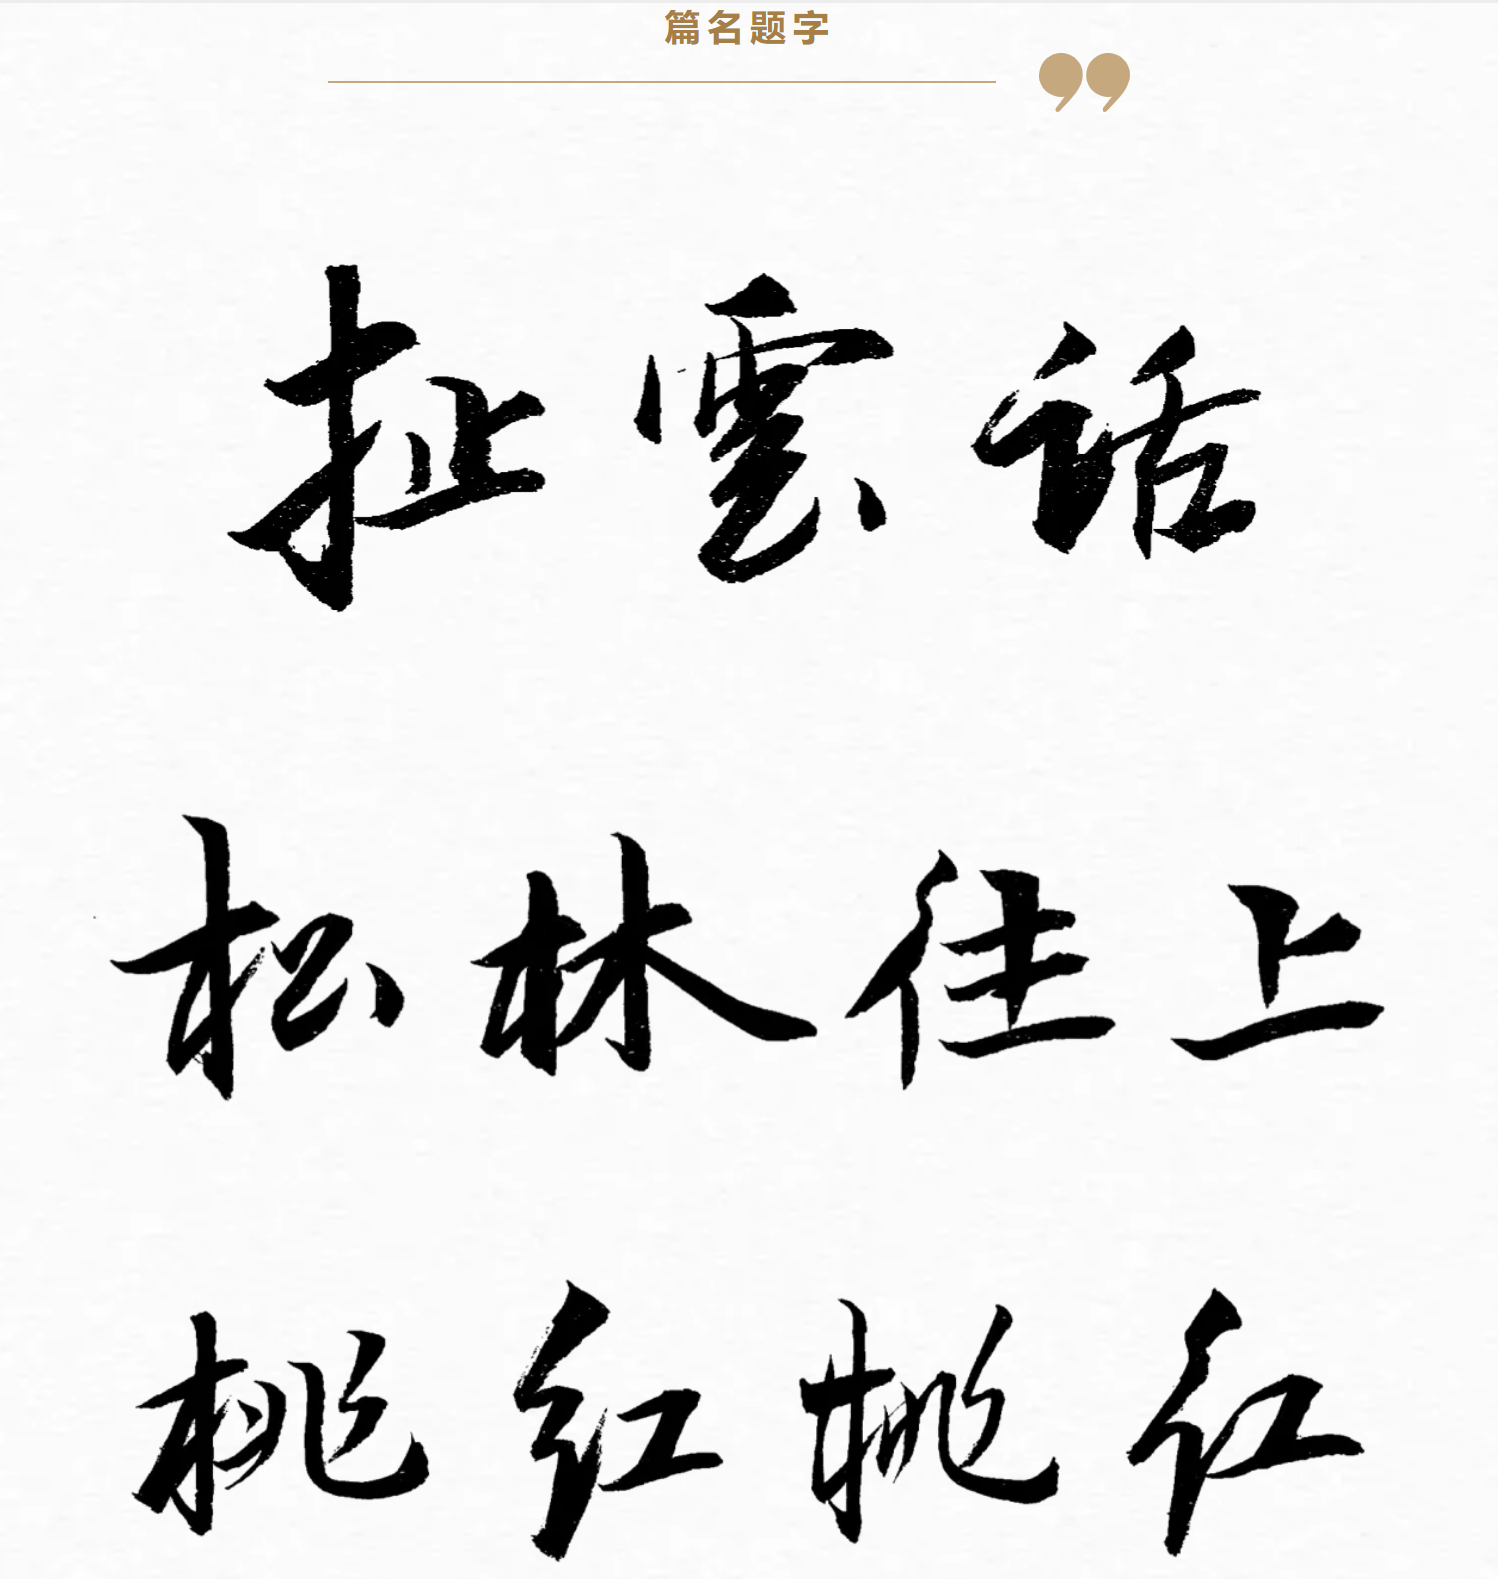 篇名题字
扯雲话
松林往上
桃红桃红